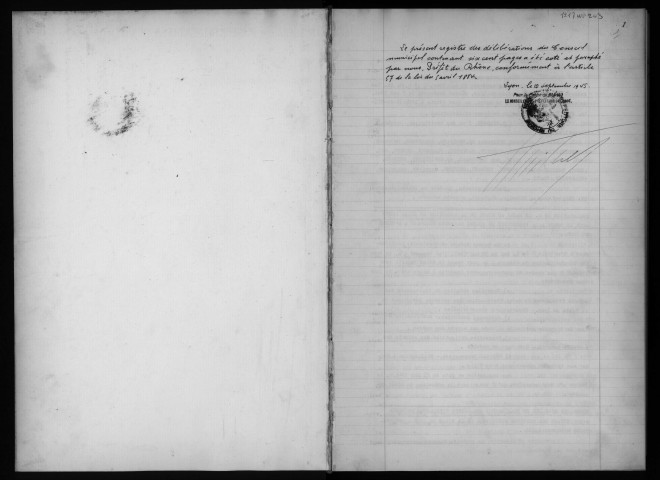 Le présent registre des délibérations du Conseil
municipal contenant six cent pages a été coté et paraphé
par nous, Préfet du Rhône, conformément à l'article
57 de la loi du 5 avril 1884.
Lyon, le 12 septembre